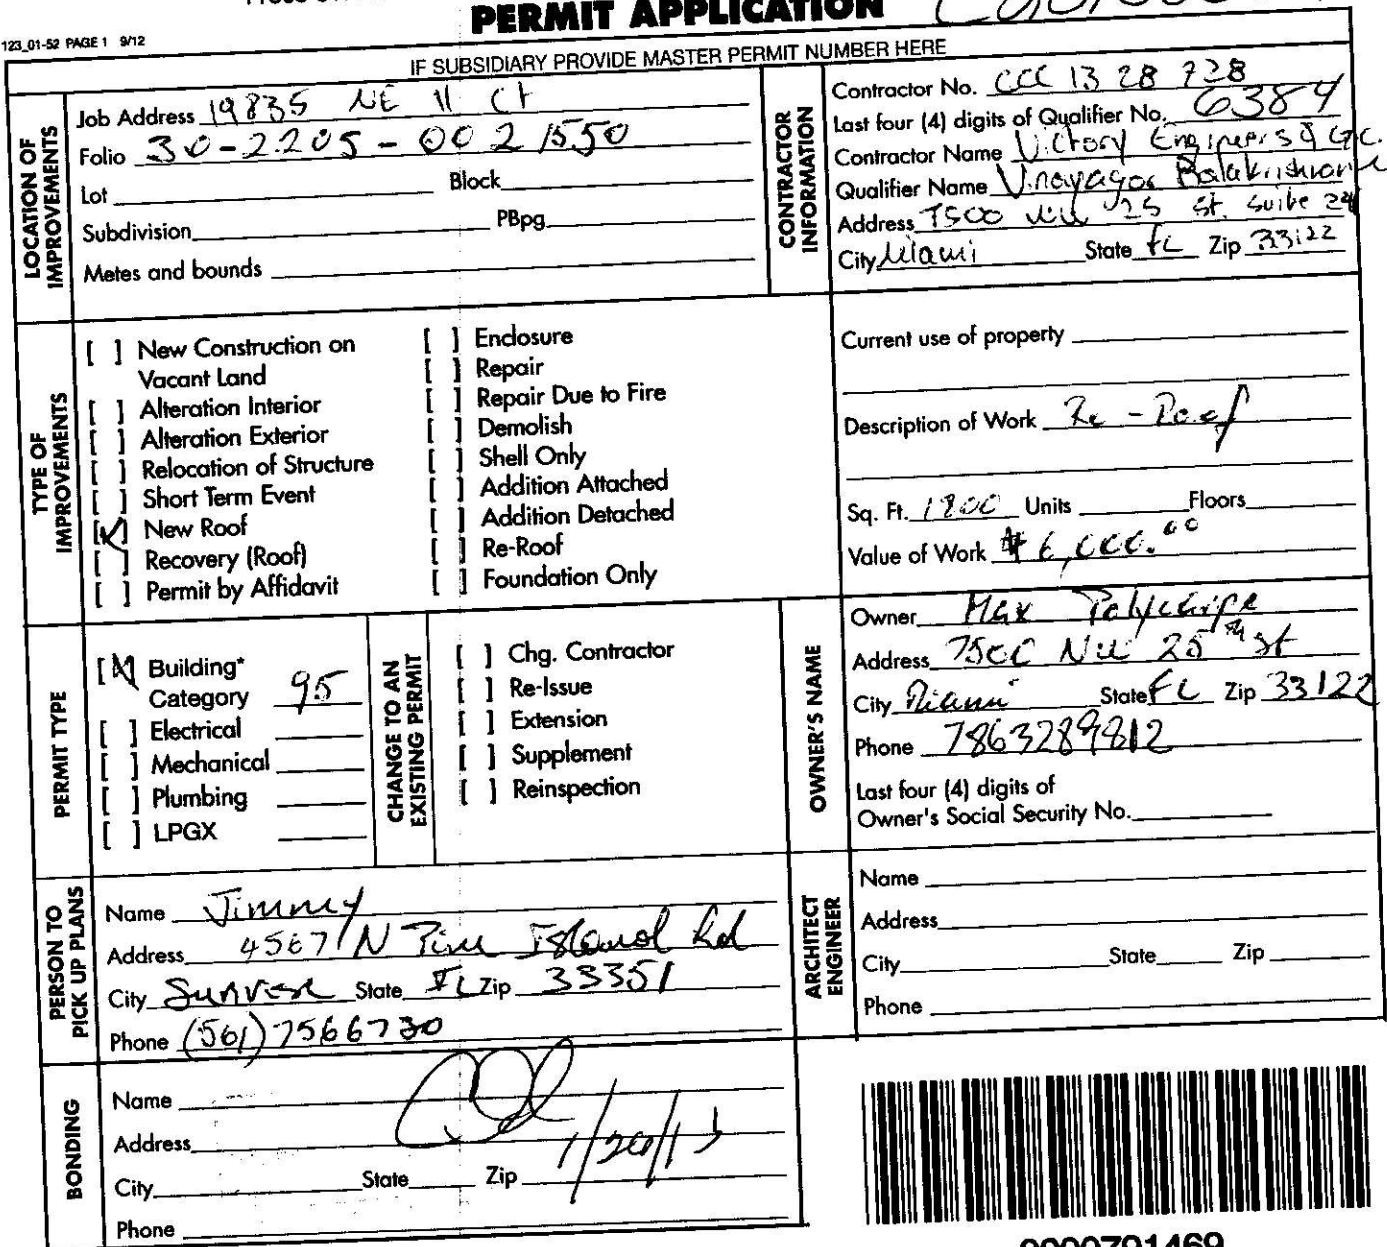 PERMIT APPLICATION
123_01-52 PAGE 1 9/12
IF SUBSIDIARY PROVIDE MASTER PERMIT NUMBER HERE
LOCATION OF IMPROVEMENTS
Job Address 19835 NE 11 Ct
Folio 30-2205-002 1550
Lot Block
Subdivision PBpg
Metes and bounds
CONTRACTOR INFORMATION
Contractor No. CCC 13 28 728
Last four (4) digits of Qualifier No. 6384
Contractor Name Victory Engineers & G.C.
Qualifier Name Vinayagar Balakrishnan
Address 7500 NW 25 St. Suite
City Miami State FL Zip 33122
TYPE OF IMPROVEMENTS
[ ] New Construction on Vacant Land
[ ] Alteration Interior
[ ] Alteration Exterior
[ ] Relocation of Structure
[ ] Short Term Event
[✓] New Roof
[ ] Recovery (Roof)
[ ] Permit by Affidavit
[ ] Enclosure
[ ] Repair
[ ] Repair Due to Fire
[ ] Demolish
[ ] Shell Only
[ ] Addition Attached
[ ] Addition Detached
[ ] Re-Roof
[ ] Foundation Only
Current use of property
Description of Work Re-Roof
Sq. Ft. 1800 Units Floors
Value of Work $6,000.00
PERMIT TYPE
[X] Building*
Category 95
[ ] Electrical
[ ] Mechanical
[ ] Plumbing
[ ] LPGX
CHANGE TO AN EXISTING PERMIT
[ ] Chg. Contractor
[ ] Re-Issue
[ ] Extension
[ ] Supplement
[ ] Reinspection
OWNER'S NAME
Owner Max
Address 7500 NW 25th St
City Miami State FL Zip 33122
Phone 7863289812
Last four (4) digits of
Owner's Social Security No.
PERSON TO PICK UP PLANS
Name Jimmy
Address 4567 N Pine Island Rd
City Sunrise State FL Zip 33351
Phone (561) 7566730
ARCHITECT ENGINEER
Name
Address
City State Zip
Phone
BONDING
Name
Address
City State Zip
Phone
1/20/13